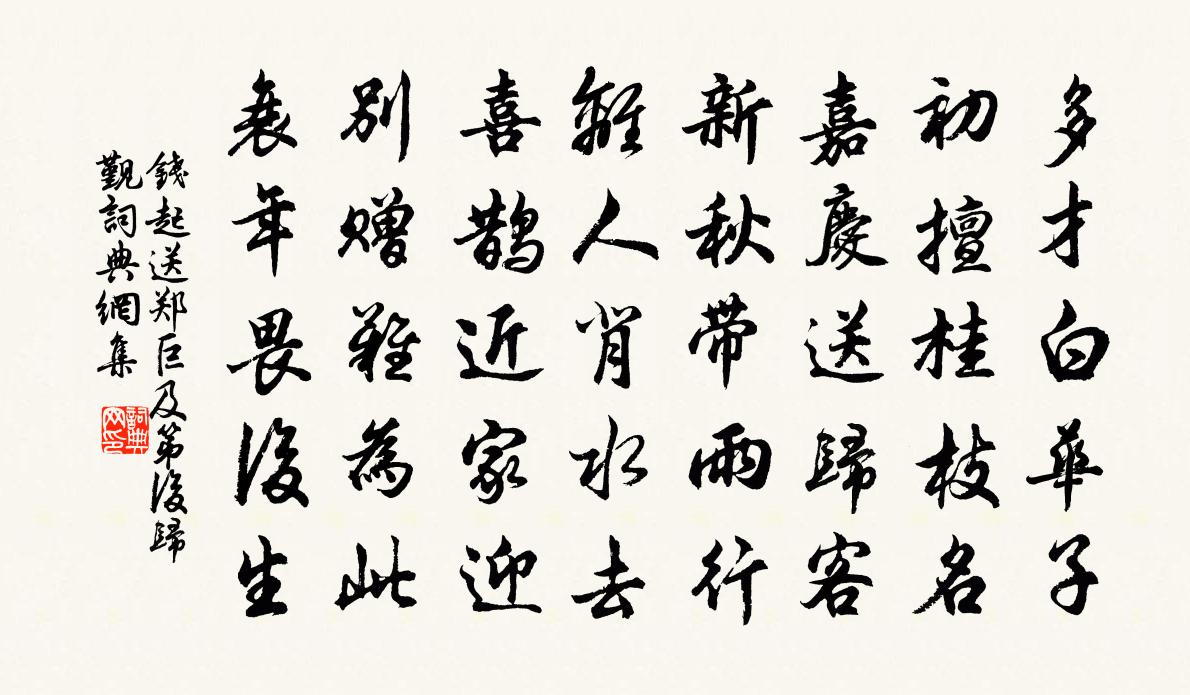 多才白華子
初擅桂枝名
嘉慶送歸客
新秋带雨行
離人背水去
喜鵲近家迎
别贈難為此
衰年畏後生
錢起送郑巨及第後歸
覲詞典網集
詞典网印